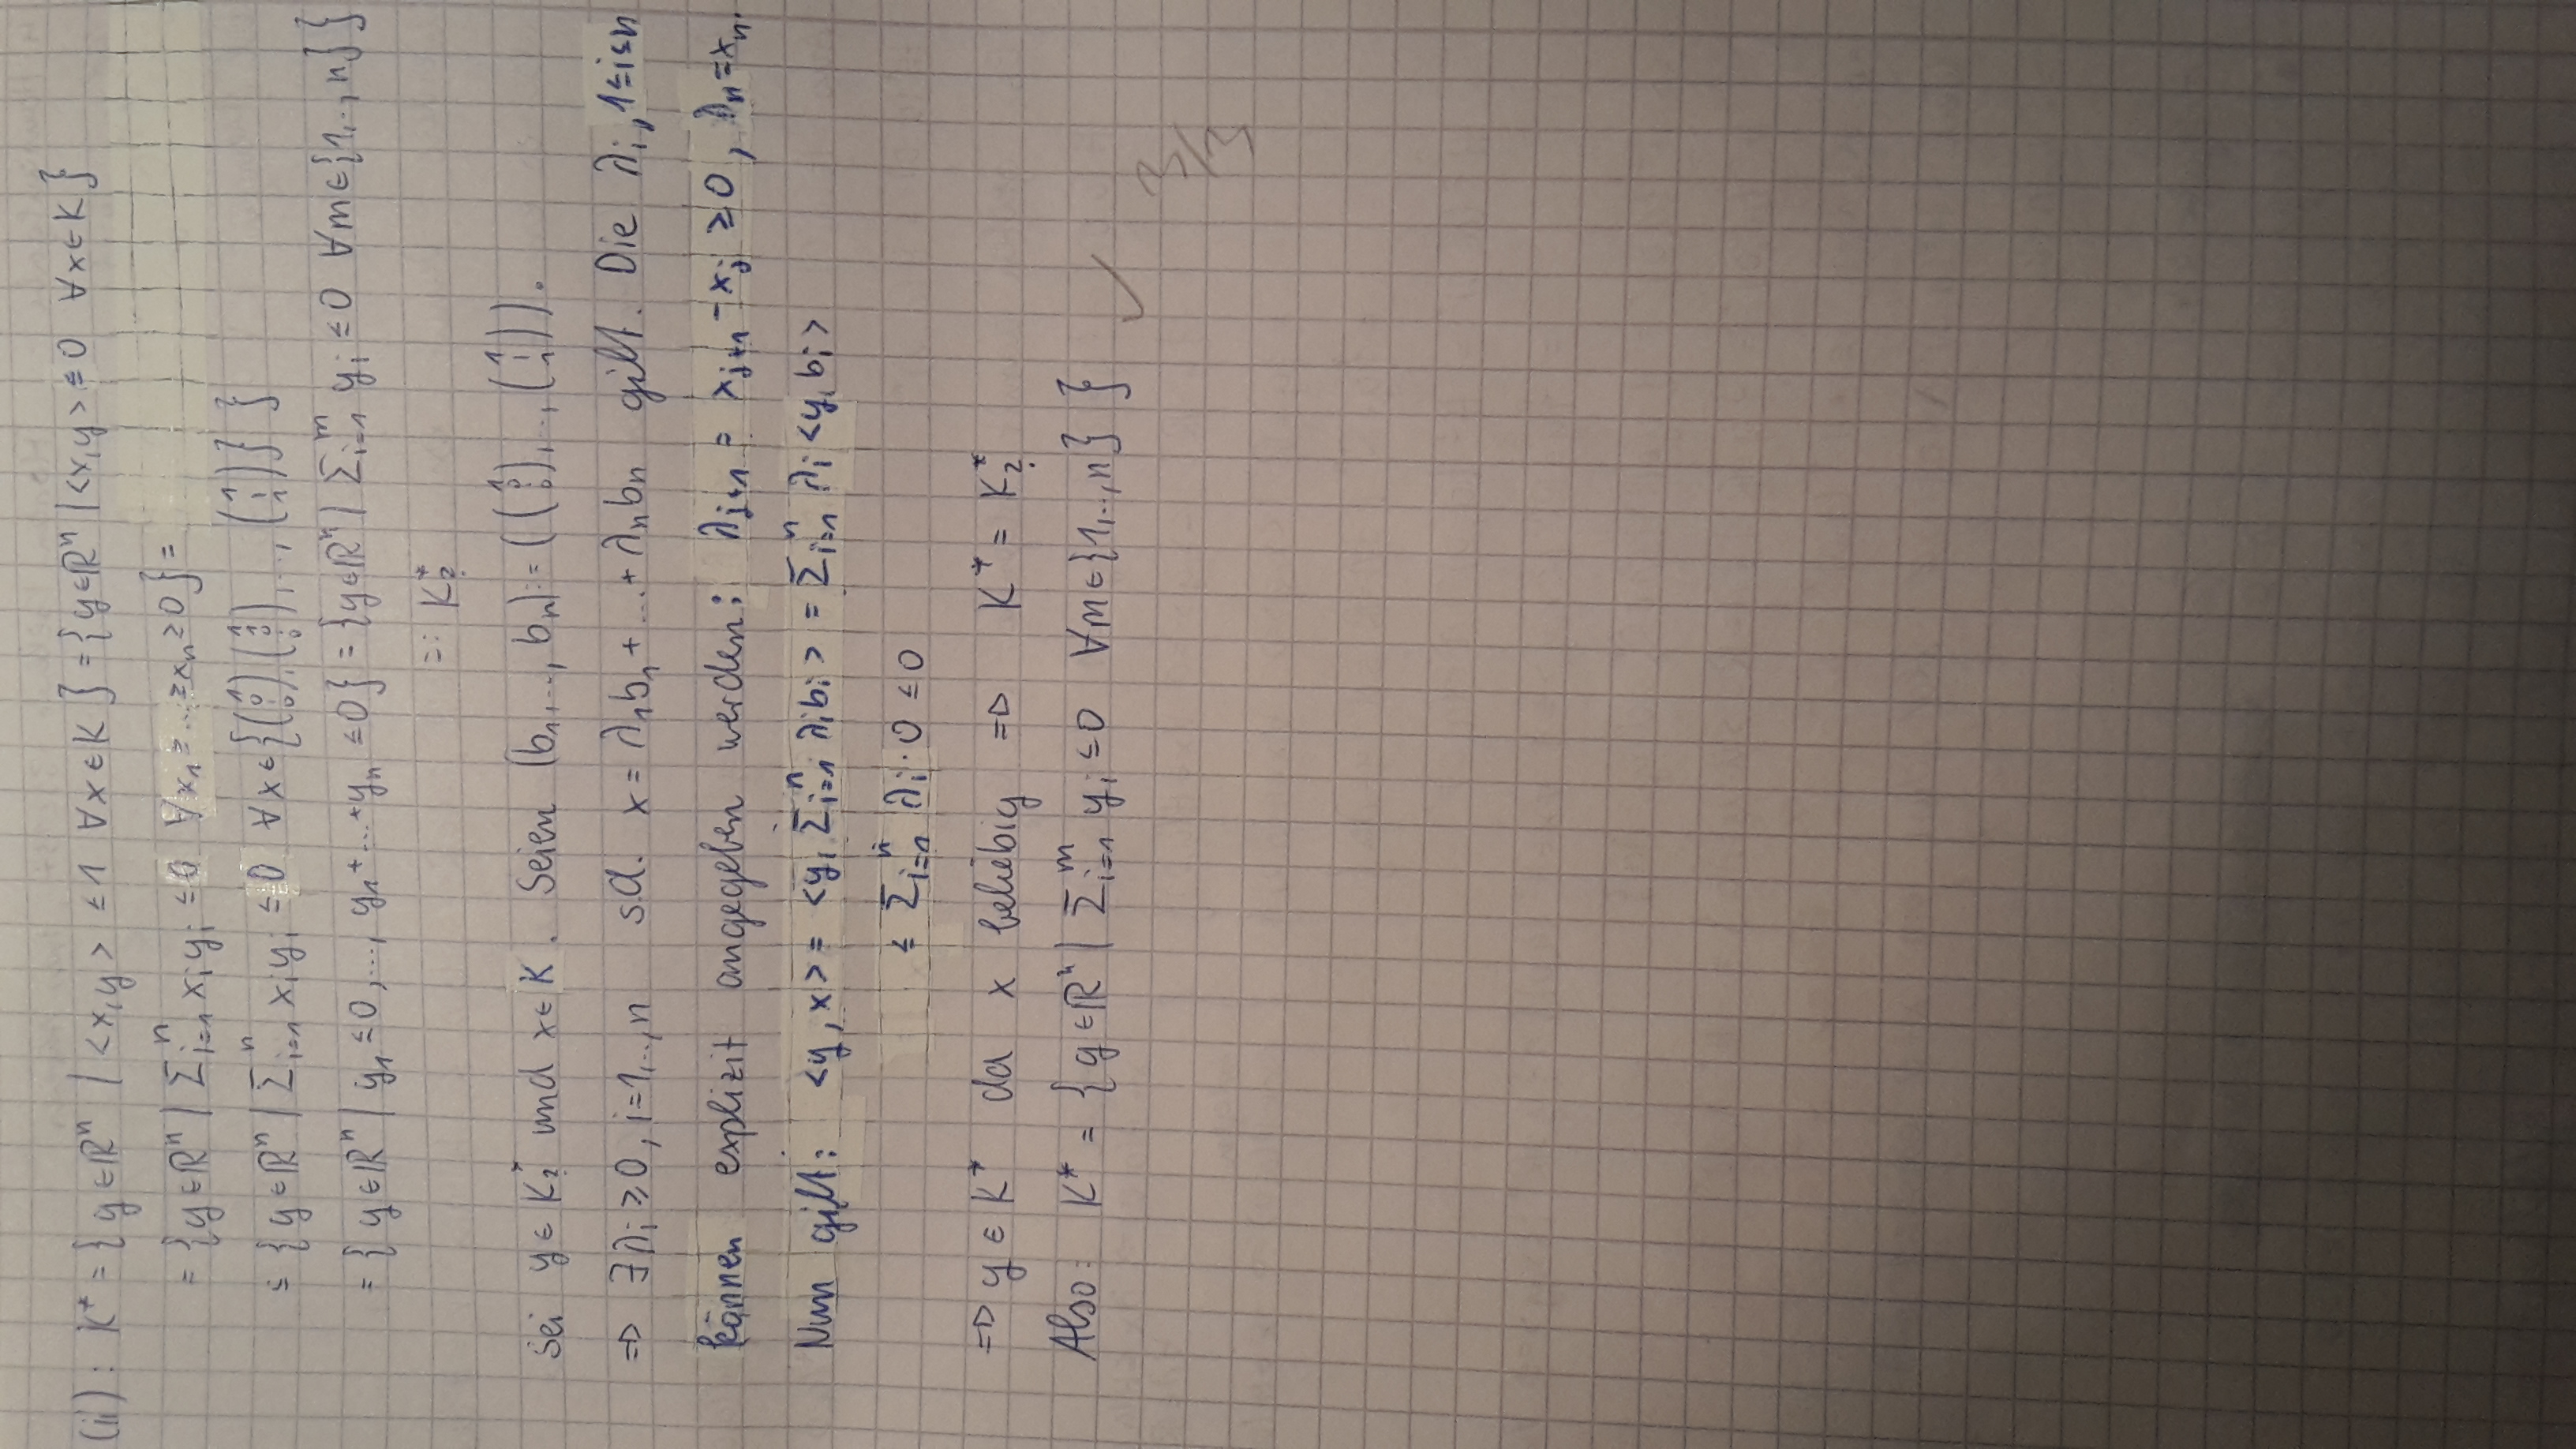 (ii): K* = {y∈ℝⁿ | <x,y> ≤ 1 ∀x∈K} = {y∈ℝⁿ | <x,y> ≤ 0 ∀x∈K}
= {y∈ℝⁿ | Σᵢ₌₁ⁿ xᵢyᵢ ≤ 0 ∀x₁≥...≥xₙ≥0} =
≤ {y∈ℝⁿ | Σᵢ₌₁ⁿ xᵢyᵢ ≤ 0 ∀x∈{(1 0 ⋮ 0), (1 1 0 ⋮ 0), ..., (1 ⋮ 1)}}
= {y∈ℝⁿ | y₁≤0, ..., y₁+...+yₙ ≤0} = {y∈ℝⁿ | Σᵢ₌₁ᵐ yᵢ ≤ 0 ∀m∈{1,..,n}}
=: K*?
Sei y∈K*? und x∈K. Seien (b₁,..., bₙ) := ((1 0 ⋮ 0), ..., (1 ⋮ 1)).
⇒ ∃λᵢ ≥0, i=1,..,n s.d. x = λ₁b₁+...+λₙbₙ gilt. Die λᵢ, 1≤i≤n
können explizit angegeben werden: λⱼ₊₁ = xⱼ₊₁ - xⱼ ≥0, λₙ=xₙ.
Nun gilt: <y,x> = <y, Σᵢ₌₁ⁿ λᵢbᵢ> = Σᵢ₌₁ⁿ λᵢ<y,bᵢ>
≤ Σᵢ₌₁ⁿ λᵢ·0 ≤0
⇒ y∈K* da x beliebig ⇒ K* = K*?
Also: K* = {y∈ℝⁿ | Σᵢ₌₁ᵐ yᵢ ≤0 ∀m∈{1,..,n}} ✓
3/3